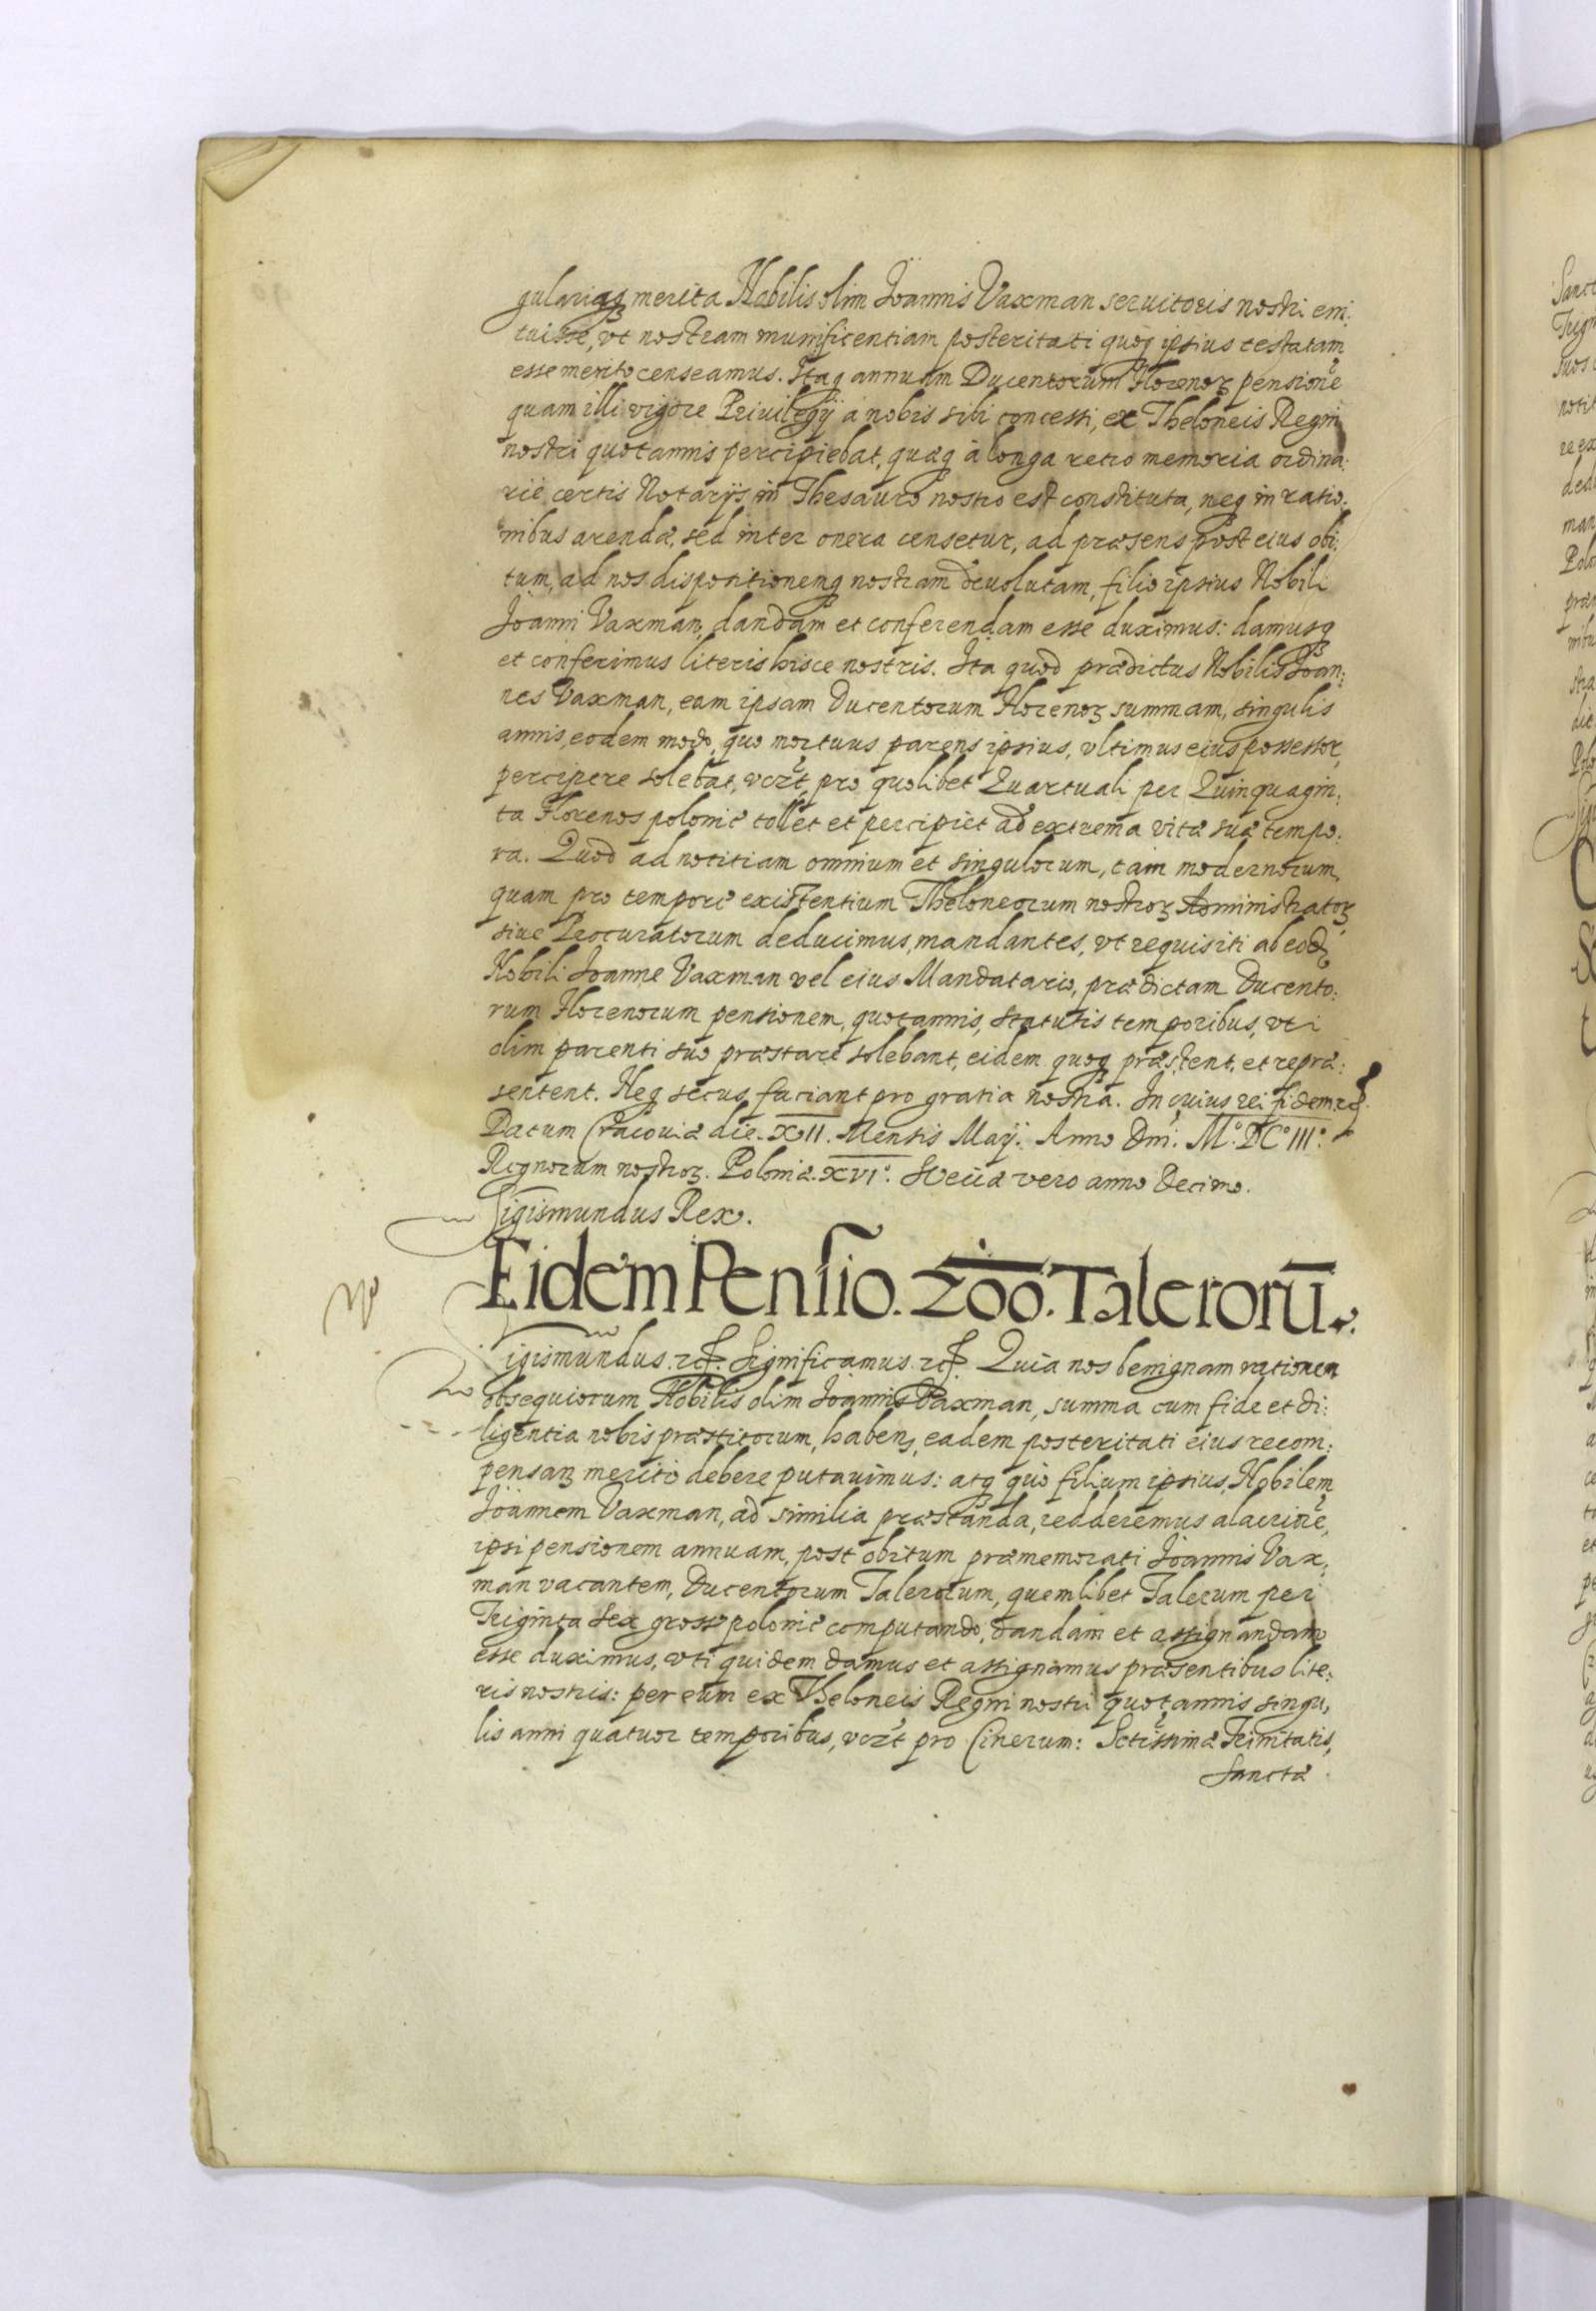 gulariaq merita Nobilis olim Ioannis Vaxman seruitoris nostri eni:
tuisse, vt nostram munificentiam posteritati quoq ipsius testatam
esse merito censeamus. Itaq annuam Ducentorum Florenoꝝ pensionē
quam illi vigore Priuilegij a nobis sibi concessi, ex Theloneis Regni
nostri quotannis percipiebat, quæq à longa retro memoria ordina:
rie certis Notarijs in Thesauro nostro est constituta, neq in ratio:
nibus arendæ, sed inter onera censetur, ad præsens post eius obi:
tum, ad nos dispositionemq nostram deuolutam, filio ipsius Nobili
Ioanni Vaxman, dandam et conferendam esse duximus: damusq
et conferimus literis hisce nostris. Ita quod prædictus Nobilis Ioan:
nes Vaxman, eam ipsam Ducentorum Florenoꝝ summam, singulis
annis, eodem modo, quo mortuus parens ipsius, vltimus eius possessor,
percipere solebat, vczt pro quolibet Quartuali per Quinquagin:
ta Florenos polonic tollet et percipiet ad extrema vitæ suæ tempo:
ra. Quod ad notitiam omnium et singulorum, tam modernorum,
quam pro tempore existentium Theloneorum nostroꝝ Administratoꝝ
siue Procuratorum deducimus, mandantes, vt requisiti ab eod
Nobili Ioanne Vaxman vel eius Mandatario, prædictam Ducento:
rum Florenorum pensionem, quotannis, statutis temporibus, vti
olim parenti suo præstare solebant, eidem quoq præstent, et repræ:
sentent. Neq secus faciant pro gratia nostra. In cuius rei fidem ꝛc.
Datum Cracouiæ die. XII. Mensis Maij. Anno Dni. M.º DCº III.º
Regnorum nostroꝝ. Poloniæ. XVI.º Sueciæ vero anno Decimo.
Sigismundus Rex.
Eidem Pensio. 200. Talerorū.
Sigismundus. ꝛc. Significamus. ꝛc. Quia nos benignam rationem
obsequiorum Nobilis olim Ioannis Vaxman, summa cum fide et di:
ligentia nobis præstitorum, habens, eadem posteritati eius recom:
pensare merito debere putauimus: atq quo filium ipsius, Nobilem
Ioannem Vaxman, ad similia præstanda, redderemus alacriorē,
ipsi pensionem annuam, post obitum præmemorati Ioannis Vax:
man vacantem, Ducentorum Talerorum, quemlibet Talerum per
Triginta sex gross polonic computando, dandam et assignandam
esse duximus, vti quidem damus et assignamus præsentibus lite:
ris nostris: per eum ex Theloneis Regni nostri quotannis singu:
lis anni quatuor temporibus, vczt pro Cinerum: Sctissimæ Trinitatis,
Sanctæ